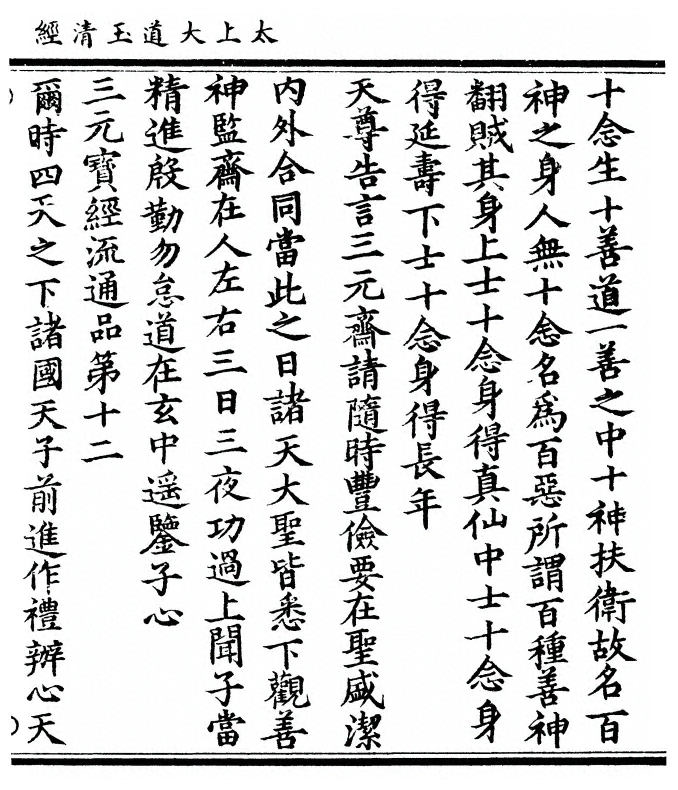 太上大道玉清經
十念生十善道一善之中十神扶衛故名百
神之身人無十念名為百惡所謂百種善神
翻賊其身上士十念身得真仙中士十念身
得延壽下士十念身得長年
天尊告言三元齋請隨時豐儉要在聖盛潔
内外合同當此之日諸天大聖皆悉下觀善
神監齋在人左右三日三夜功過上聞子當
精進殷勤勿怠道在玄中遥鑒子心
三元寶經流通品第十二
爾時四天之下諸國天子前進作禮辦心天